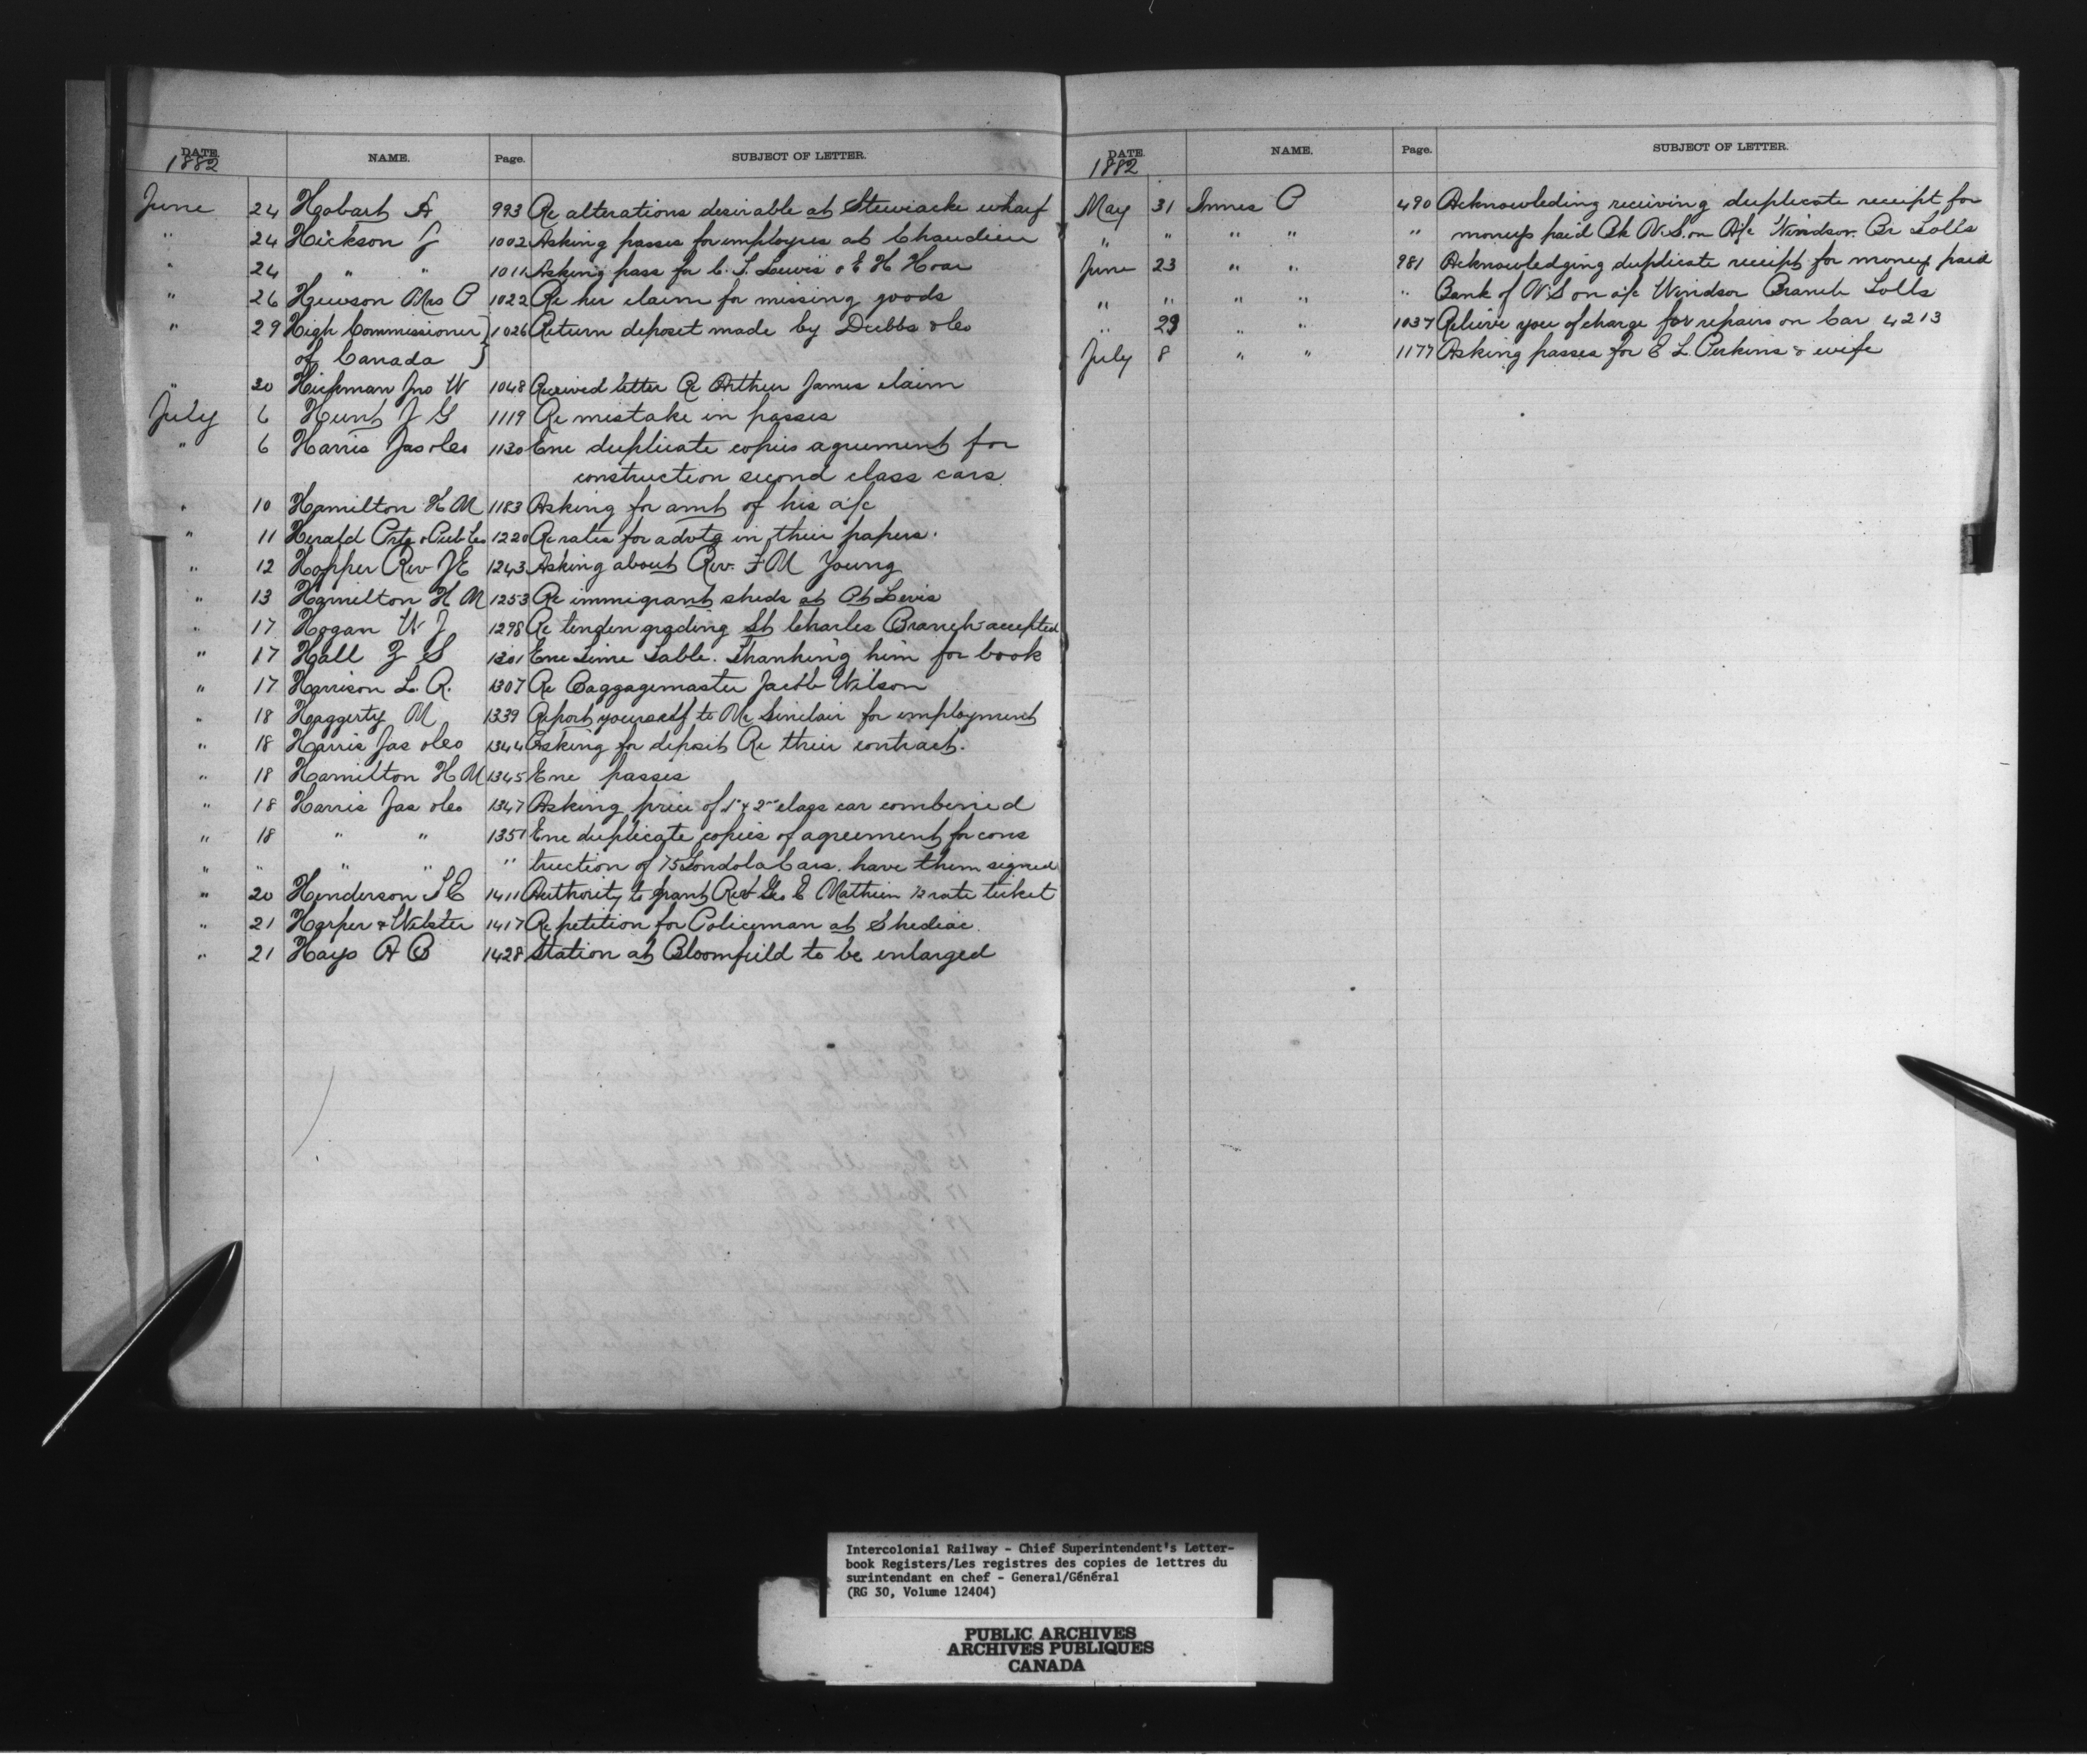 DATE. NAME. Page. SUBJECT OF LETTER.
1882
June 24 Hobart A 993 Re alterations desirable at Stewiacke wharf
" 24 Hickson J 1002 Asking passes for employes at Chaudiere
" 24 " " 1011 Asking pass for C. S. Lewis & E H Hoar
" 26 Hewson Mrs P 1022 Re her claim for missing goods
" 29 High Commissioner } 1026 Return deposit made by Dubbs & Co
of Canada }
" 30 Hickman Jno W 1048 Received letter Re Arthur James claim
July 6 Hunt J G 1119 Re mistake in passes
" 6 Harris Jas & Co 1130 Enc duplicate copies agreement for
construction second class cars
" 10 Hamilton H M 1183 Asking for amt of his a/c
" 11 Herald Ptg & Pub Co 1220 Re rates for advtg in their papers.
" 12 Hopper Rev J E 1243 Asking about Rev. F M Young
" 13 Hamilton H M 1253 Re immigrant sheds at Pt Levis
" 17 Hogan W J 1298 Re tender grading St Charles Branch - accepted
" 17 Hall Z S 1301 Enc Time Table. Thanking him for book
" 17 Harrison L. R. 1307 Re Baggagemaster Jacob Wilson
" 18 Haggerty M 1339 Report yourself to Mr Sinclair for employment
" 18 Harris Jas & Co 1344 Asking for deposit Re their contract.
" 18 Hamilton H M 1345 Enc passes
" 18 Harris Jas & Co 1347 Asking price of 1st & 2nd class car combined
" 18 " " 1351 Enc duplicate copies of agreement for cons
" " " " " truction of 75 Gondola Cars. have them signed
" 20 Henderson S E 1411 Authority to grant Revd Geo E Mathien ½ rate ticket
" 21 Harper & Webster 1417 Re petition for Policeman at Shediac.
" 21 Hays A B 1428 Station at Bloomfield to be enlarged
DATE. NAME. Page. SUBJECT OF LETTER.
1882
May 31 Innes P 490 Acknowleding receiving duplicate receipt for
" " " " " moneys paid Bk N.S. on A/c Windsor Br Tolls
June 23 " " 981 Acknowledging duplicate receipt for moneys paid
" " " " " Bank of N S on a/c Windsor Branch Tolls
" 29 " " 1037 Relieve you of charge for repairs on Car 4213
July 8 " " 1177 Asking passes for E L. Perkins & wife
Intercolonial Railway - Chief Superintendent's Letter-
book Registers/Les registres des copies de lettres du
surintendant en chef - General/Général
(RG 30, Volume 12404)
PUBLIC ARCHIVES
ARCHIVES PUBLIQUES
CANADA